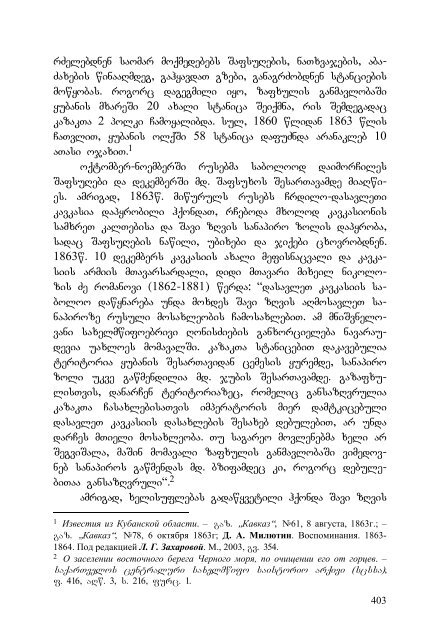 რძელებდნენ საომარ მოქმედებებს შაფსუღების, ნათხვაჯების, აბა-
ძახების წინააღმდეგ, გაჰყავდათ გზები, განაგრძობდნენ სტანციების
მოწყობას. როგორც დაგეგმილი იყო, ზაფხულის განმავლობაში
ყუბანის მხარეში 20 ახალი სტანიცა შეიქმნა, რის შემდეგადაც
კაზაკთა 2 პოლკი ჩამოყალიბდა. სულ, 1860 წლიდან 1863 წლის
ჩათვლით, ყუბანის ოლქში 58 სტანიცა დაფუძნდა არანაკლებ 10
ათასი ოჯახით.1
ოქტომბერ-ნოემბერში რუსებმა საბოლოოდ დაიმორჩილეს
შაფსუღები და დეკემბერში მდ. შაფსუხოს შესართავამდე მიაღწი-
ეს. ამრიგად, 1863წ. მიწურულს რუსებს ჩრდილო-დასავლეთი
კავკასია დაპყრობილი ჰქონდათ, რჩებოდა მხოლოდ კავკასიონის
სამხრეთ კალთებისა და შავი ზღვის სანაპირო ზოლის დაპყრობა,
სადაც შაფსუღების ნაწილი, უბიხები და ჯიქები ცხოვრობდნენ.
1863წ. 10 დეკემბერს კავკასიის ახალი მეფისნაცვალი და კავკა-
სიის არმიის მთავარსარდალი, დიდი მთავარი მიხეილ ნიკოლო-
ზის ძე რომანოვი (1862-1881) წერდა: “დასავლეთ კავკასიის სა-
ბოლოო დაწყნარება უნდა მოხდეს შავი ზღვის აღმოსავლეთ სა-
ნაპიროზე რუსული მოსახლეობის ჩამოსახლებით. ამ მნიშვნელო-
ვანი სახელმწიფოებრივი ღონისძიების განხორციელება ნავარაუ-
დევია უახლოეს მომავალში. კაზაკთა სტანიცებით დაკავებულია
ტერიტორია ყუბანის შესართავიდან ცემესის ყურემდე, სანაპირო
ზოლი უკვე გაწმენდილია მდ. ჯუბის შესართავამდე. გაზაფხუ-
ლისთვის, დანარჩენ ტერიტორიაზეც, რომელიც განსაზღვრულია
კაზაკთა ჩასახლებისათვის იმპერატორის მიერ დამტკიცებული
დასავლეთ კავკასიის დასახლების შესახებ დებულებით, არ უნდა
დარჩეს მთიელი მოსახლეობა. თუ საგარეო მოვლენებმა ხელი არ
შეგვიშალა, მაშინ მომავალი ზაფხულის განმავლობაში ვიმედოვ-
ნებ სანაპიროს გაწმენდას მდ. ბზიფამდეც კი, როგორც დებულე-
ბითაა განსაზღვრული“.2
ამრიგად, ხელისუფლებას გადაწყვეტილი ჰქონდა შავი ზღვის
1 Известия из Кубанской области. – გაზ. „Кавказ“, №61, 8 августа, 1863г.; –
გაზ. „Кавказ“, №78, 6 октября 1863г; Д. А. Милютин. Воспоминания. 1863-
1864. Под редакцией Л. Г. Захаровой. М., 2003, გვ. 354.
2 О заселении восточного берега Черного моря, по очищении его от горцев. –
საქართველოს ცენტრალური სახელმწიფო საისტორიო არქივი (სცსსა),
ფ. 416, აღწ. 3, ს. 216, ფურც. 1.
403